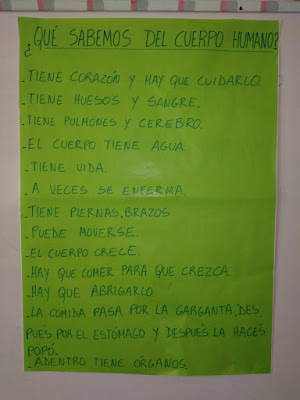 ¿QUÉ SABEMOS DEL CUERPO HUMANO?
.TIENE CORAZÓN Y HAY QUE CUIDARLO.
.TIENE HUESOS Y SANGRE.
.TIENE PULMONES Y CEREBRO.
.EL CUERPO TIENE AGUA.
.TIENE VIDA.
.A VECES SE ENFERMA.
.TIENE PIERNAS, BRAZOS
.PUEDE MOVERSE.
.EL CUERPO CRECE.
.HAY QUE COMER PARA QUE CREZCA.
.HAY QUE ABRIGARLO
.LA COMIDA PASA POR LA GARGANTA, DES
PUÉS POR EL ESTÓMAGO Y DESPUÉS LA HACÉS
POPÓ.
.ADENTRO TIENE ÓRGANOS.